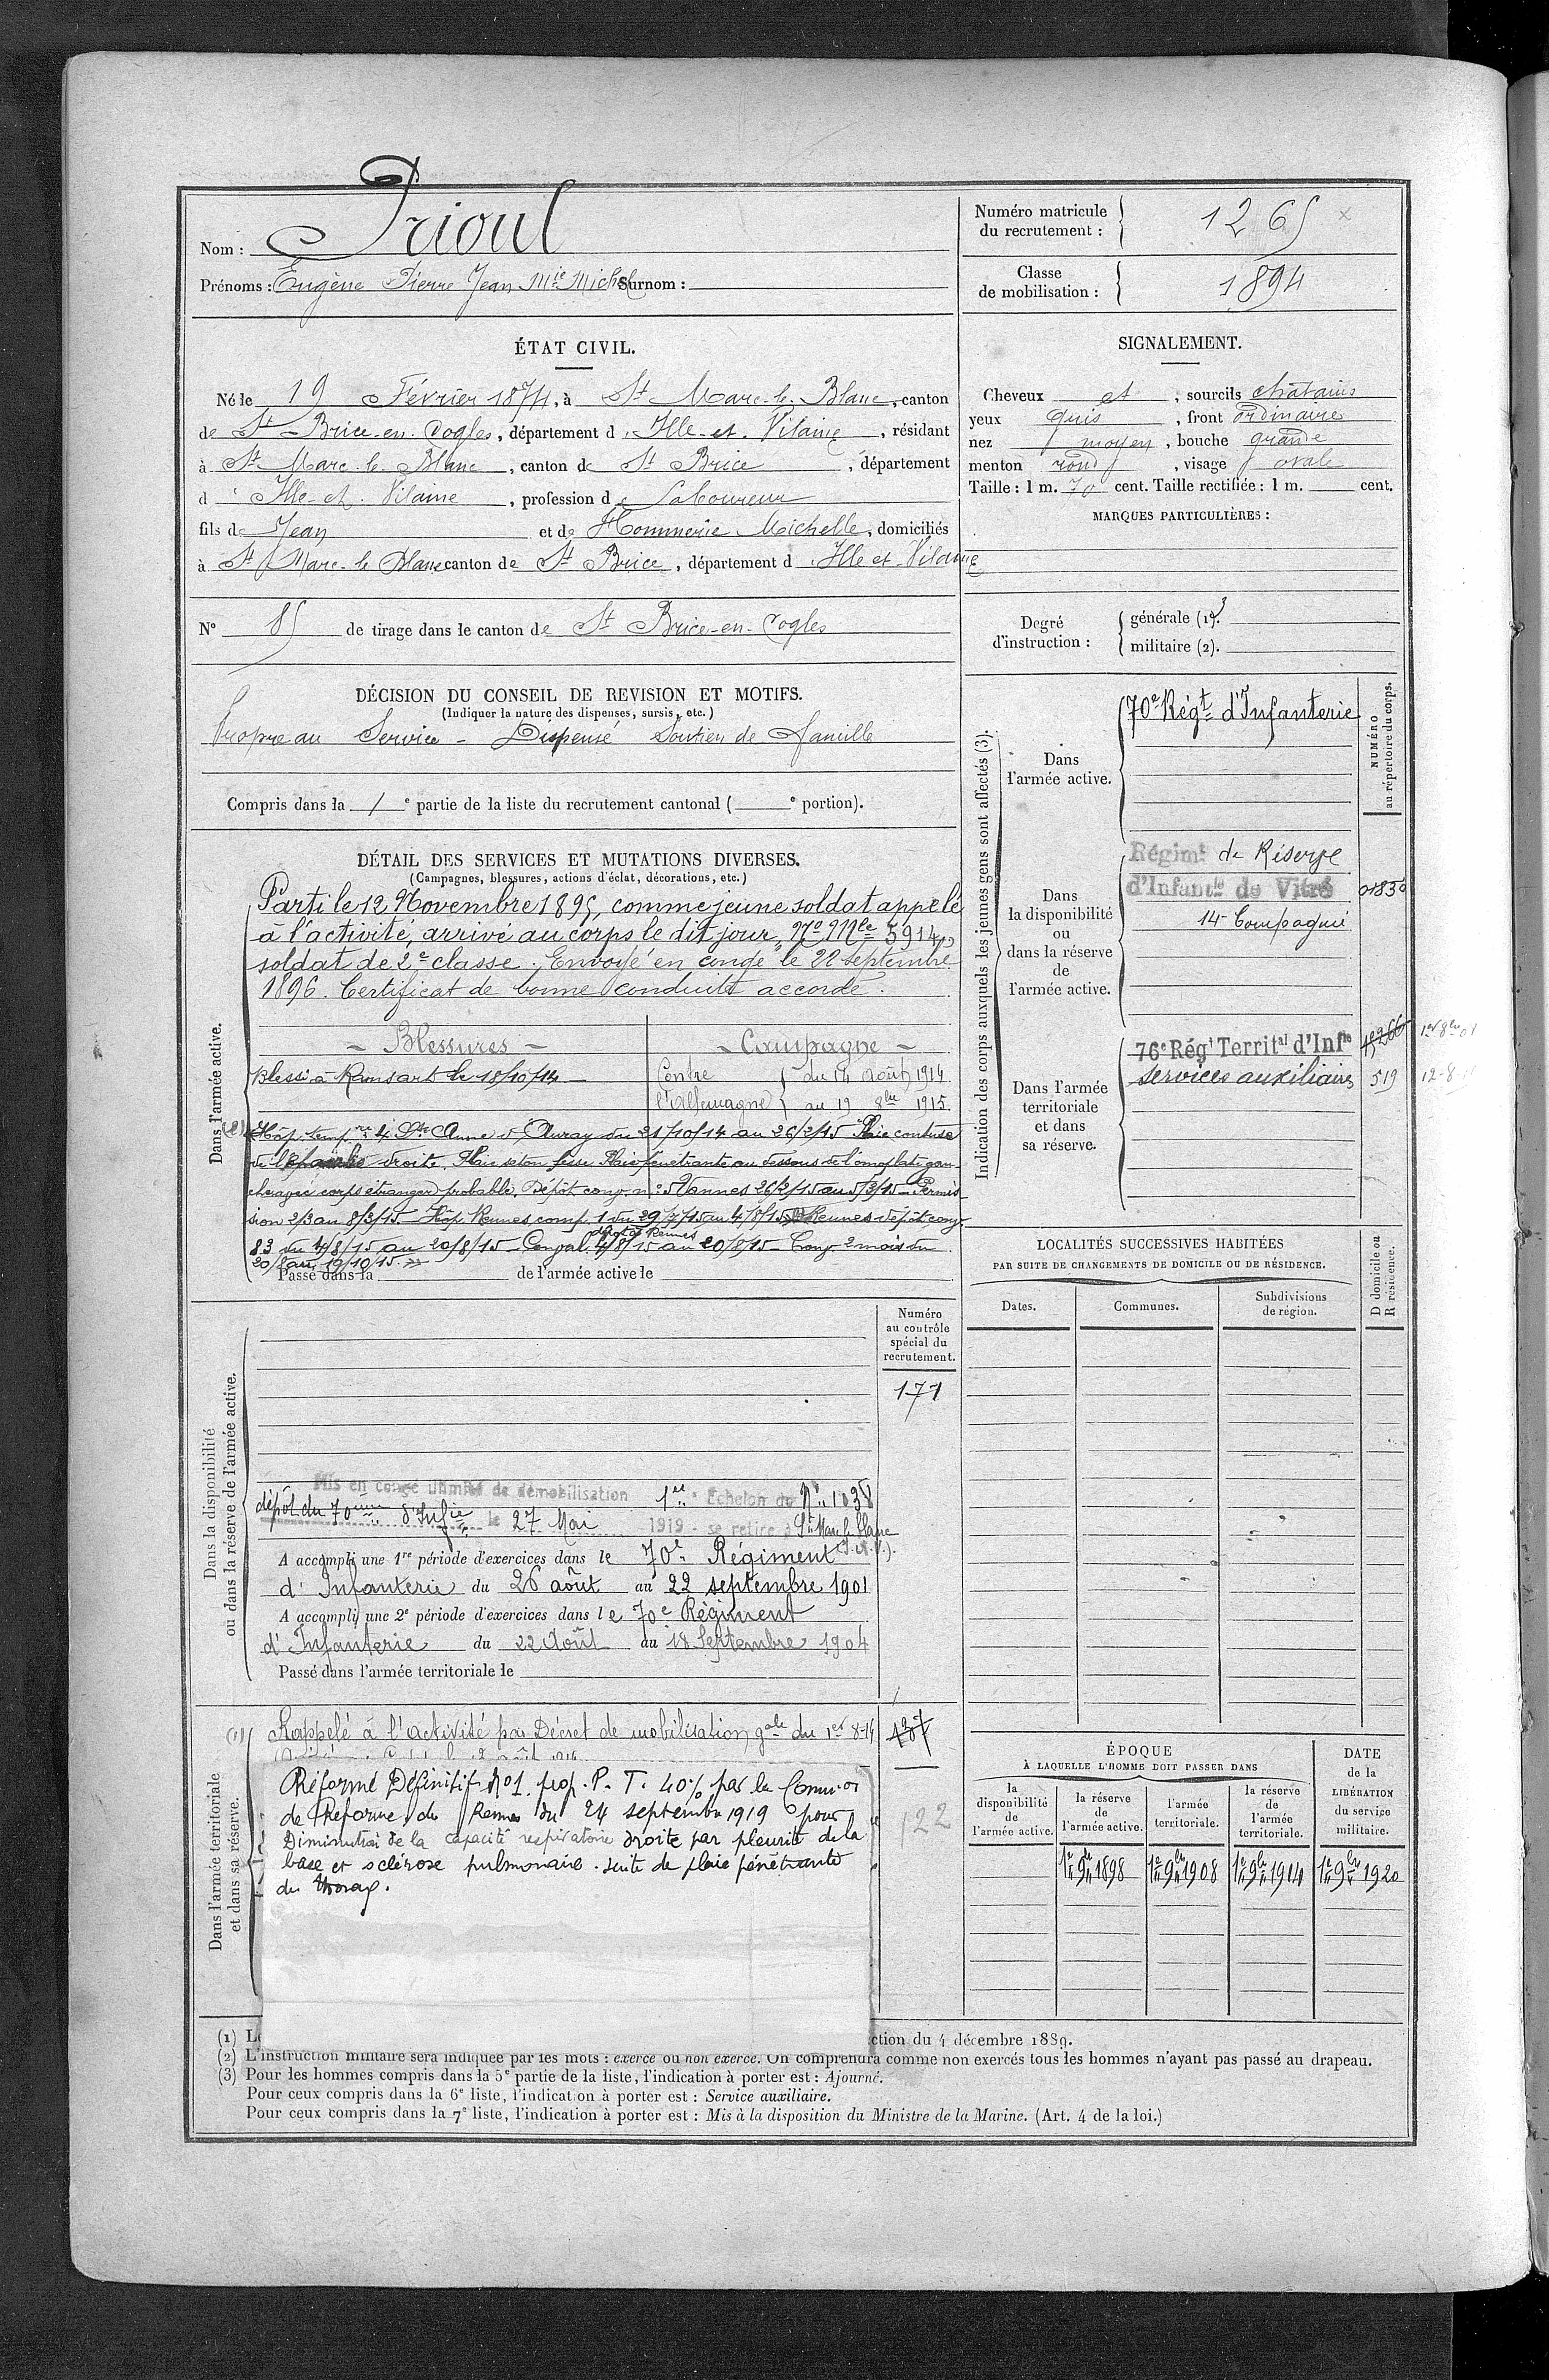 Nom : Prioul
Prénoms : Eugène Pierre Jean Mie Michel Surnom :
Numéro matricule du recrutement : 1265 x
Classe de mobilisation : 1894
ÉTAT CIVIL.
Né le 19 Février 1874, à St Marc-le-Blanc, canton
de St-Brice-en-Cogles, département d'Ille-et-Vilaine, résidant
à St Marc-le-Blanc, canton de St Brice, département
d'Ille-et-Vilaine, profession de Laboureur
fils de Jean et de Hommerie Michelle, domiciliés
à St Marc-le Blanc canton de St Brice, département d'Ille et Vilaine
SIGNALEMENT.
Cheveux et , sourcils châtains
yeux gris , front ordinaire
nez moyen , bouche grande
menton rond , visage ovale
Taille : 1 m. 70 cent. Taille rectifiée : 1 m. cent.
MARQUES PARTICULIÈRES :
N° 85 de tirage dans le canton de St Brice-en-Cogles
Degré d'instruction : générale (1). 3
militaire (2).
DÉCISION DU CONSEIL DE REVISION ET MOTIFS.
(Indiquer la nature des dispenses, sursis, etc.)
Propre au Service - Dispensé Soutien de famille
Compris dans la 1 e partie de la liste du recrutement cantonal ( e portion).
DÉTAIL DES SERVICES ET MUTATIONS DIVERSES.
(Campagnes, blessures, actions d'éclat, décorations, etc.)
Dans l'armée active.
Parti le 12 Novembre 1895, comme jeune soldat appelé
à l'activité, arrivé au corps le dit jour, No Mle 3914,
soldat de 2e classe. Envoyé en congé le 22 septembre
1896. Certificat de bonne conduite accordé.
- Blessures -
Blessé à Ransart le 18/10/14
- Campagne -
Contre l'Allemagne } du 14 Août 1914
au 19 8bre 1915.
(2) Hôp. tempre 4 Ste Anne d'Auray du 21/10/14 au 26/2/15 Plaie contuse
de l'épaule droite. Plaie séton fesse Plaie pénétrante au dessous de l'omoplate gau-
che avec corps étranger probable. Dépôt conv. no 5 Vannes 26/2/15 au 5/3/15 - Permis-
sion 2/3 au 8/3/15 - Hôp. Rennes comp. 1 du 29/7/15 au 4/8/15 Rennes dépôt conv.
83 du 4/8/15 au 20/8/15 - Conval. dépôt de Rennes 4/8/15 au 20/8/15 - Conv. 2 mois du
20/8 au 19/10/15.
Passé dans la de l'armée active le
Indication des corps auxquels les jeunes gens sont affectés (3).
NUMÉRO au répertoire du corps.
Dans l'armée active.
70e Régt d'Infanterie
Dans la disponibilité ou dans la réserve de l'armée active.
Régimt de Réserve
d'Infantie de Vitré 01850
14e Compagnie
Dans l'armée territoriale et dans sa réserve.
76e Régt Territal d'Infie
Services auxiliaires 519
LOCALITÉS SUCCESSIVES HABITÉES
PAR SUITE DE CHANGEMENTS DE DOMICILE OU DE RÉSIDENCE.
Dates. Communes. Subdivisions de région. D domicile ou R résidence.
Dans la disponibilité ou dans la réserve de l'armée active.
Numéro au contrôle spécial du recrutement.
171
Mis en congé illimité de démobilisation 1er Echelon du No 1038
dépôt du 70ème d'Infie le 27 Mai 1919 - se retire à St Marc le Blanc
(I.et.V.).
A accompli une 1re période d'exercices dans le 70e Régiment
d'Infanterie du 26 août au 22 septembre 1901
A accompli une 2e période d'exercices dans le 70e Régiment
d'Infanterie du 22 Août au 18 Septembre 1904
Passé dans l'armée territoriale le
Dans l'armée territoriale et dans sa réserve.
(1) Rappelé à l'activité par Décret de mobilisation gale du 1er 8-14
Réformé Définitif No 1. prop. P. T. 40% par la Commion
de Réforme de Rennes du 24 septembre 1919 pour
Diminution de la capacité respiratoire droite par pleurite de la
base et sclérose pulmonaire. suite de plaie pénétrante
du thorax.
122
ÉPOQUE
À LAQUELLE L'HOMME DOIT PASSER DANS
la disponibilité de l'armée active.
la réserve de l'armée active.
l'armée territoriale.
la réserve de l'armée territoriale.
DATE de la LIBÉRATION du service militaire.
1er 9bre 1898 1er 9bre 1908 1er 9bre 1914 1er 9bre 1920
(1) ction du 4 décembre 1889.
(2) L'instruction militaire sera indiquée par les mots : exercé ou non exercé. On comprendra comme non exercés tous les hommes n'ayant pas passé au drapeau.
(3) Pour les hommes compris dans la 5e partie de la liste, l'indication à porter est : Ajourné.
Pour ceux compris dans la 6e liste, l'indication à porter est : Service auxiliaire.
Pour ceux compris dans la 7e liste, l'indication à porter est : Mis à la disposition du Ministre de la Marine. (Art. 4 de la loi.)